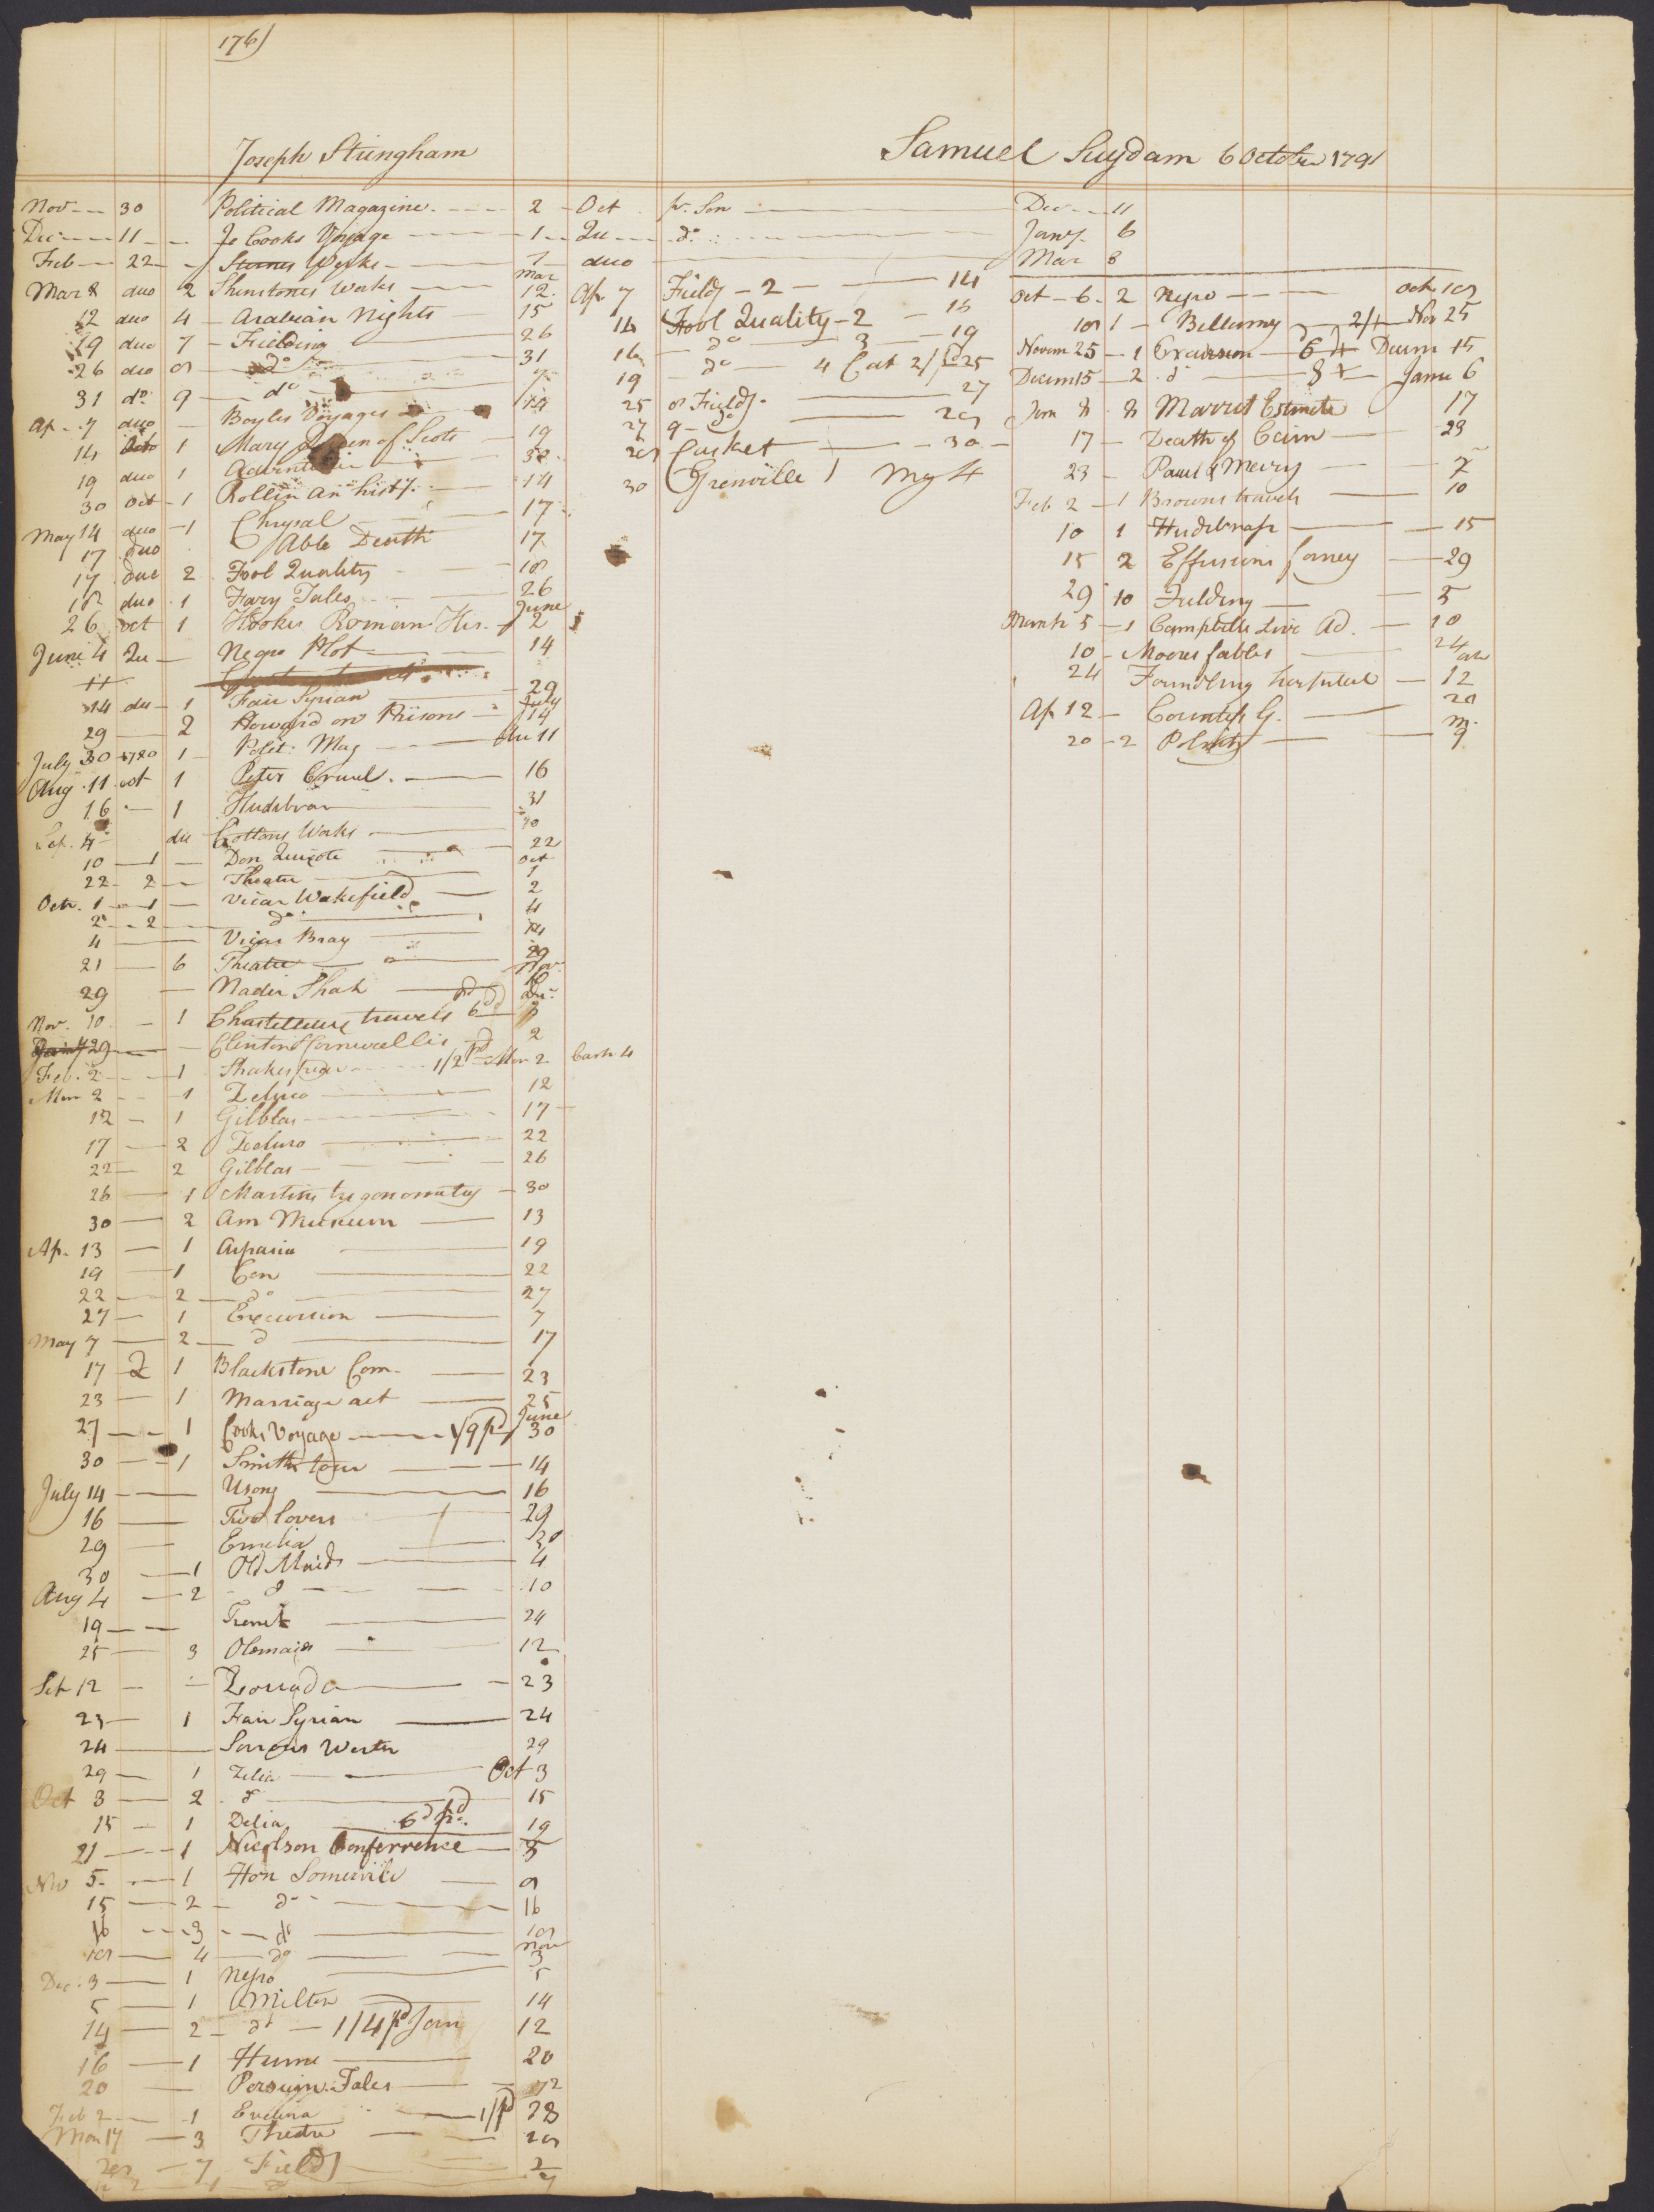 176)
Joseph Stringham
Nov 30 Political Magazine. 2 Oct pr. Son Dec 11
Dec 11 Jo Cooks Voyage 1 Qu do Jany 6
Feb 22 Works duo Mar 8
Mar 8 duo 2 Shinstones Works Mar 12 Ap 7 Fieldg 2 14
12 duo 4 Arabian Nights 15 14 Fool Quality 2 16
19 duo 7 Fielding 26 16 do 3 19
26 duo 8 do 31 19 do 4 Cat 2/ 25
31 do 9 do 7 25 8 Fieldg. 27
Ap. 7 duo Boyles Voyages 14 27 9 do 28
14 1 Mary Queen of Scots 19 28 Casket 30
19 duo 1 30 30 Grenville 1 My 4
30 Oct 1 Rollin an histy. 14
May 14 duo 1 Chrysal 17
17 duo Able Death 17
17 duo 2 Fool Quality 18
18 duo 1 Fary Tales 26
26 oct 1 Hooks Roman His. June 2
June 4 Qu Negro Plot 14
11
14 du 1 Fair Syrian 29
29 2 Howard on Prisons July 14
July 30 1780 1 Polit: Mag Au 11
Aug. 11 oct 1 Peter Cruel. 16
16 1 Hudibras 31
Sep. 4 du Cottons Works 10
10 1 Don Quixote 22
22 2 Theatre Oct 1
Octr. 1 1 Vicar Wakefield 2
2 2 do 4
4 Vicar Bray
21 6 Theatre 29
29 Nadir Shah Nov. 10
Nov. 10 1 Chastelleux travels 6d pd
29 Clinton & Cornwallis 2
Feb. 2 1 Shakespear 1/2 pd Mar 2 Cash 4
Mar 2 1 Zeluco 12
12 1 Gilblas 17
17 2 Zeluco 22
22 2 Gilblas 26
26 1 Martins trigonometry 30
30 2 Am Museum 13
Ap. 13 1 Aspasia 19
19 1 Con 22
22 2 do 27
27 1 Excursion 7
May 7 2 d 17
17 2 1 Blackstone Com. 23
23 1 Marriage act 25
27 1 Cooks Voyage 1/9 pd June 30
30 1 Smiths tour 14
July 14 Usong 16
16 Two Lovers 29
29 Emelia 30
30 1 Old Maids 4
Aug 4 2 d 10
19 24
25 3 Olemaids 12
Set 12 Zoriada 23
23 1 Fair Syrian 24
24 Sorrows Werter 29
29 1 Zelia Oct 3
Oct 3 2 d 15
15 1 Delia 6d pd. 19
21 1 Nicolson Conferrence 5
Nov 5 1 Hon Somervile 9
15 2 do 16
16 3 do 18
18 4 do Nov 3
Dec. 3 1 Negro 5
5 1 Amilton 14
14 2 do 1/4 pd Jan 12
16 1 Hume 20
20 Persian Tales 2
Feb 2 1 Evelina 1/pd 28
Mar 17 3 Theatre 28
28 7 Field 2
Samuel Suydam 6 October 1791
Oct 6 2 Negro Oct. 18
18 1 Bellamy 2/ Nov 25
Novem 25 1 Excursion 6 Decem 15
Decem 15 2 d 8 Janu 6
Jan 8 8 Marret Estimate 17
17 Death of Cain 23
23 Paul & Mary 2
Feb 2 1 Browns travels 10
10 1 Hudibrass 15
15 2 Effusions fancy 29
29 10 Fielding 5
March 5 1 Campbells Live Ad. 10
10 Moores fables 24
24 Foundling hospital 12
Ap 12 Countess G. 20
20 2 m. 9